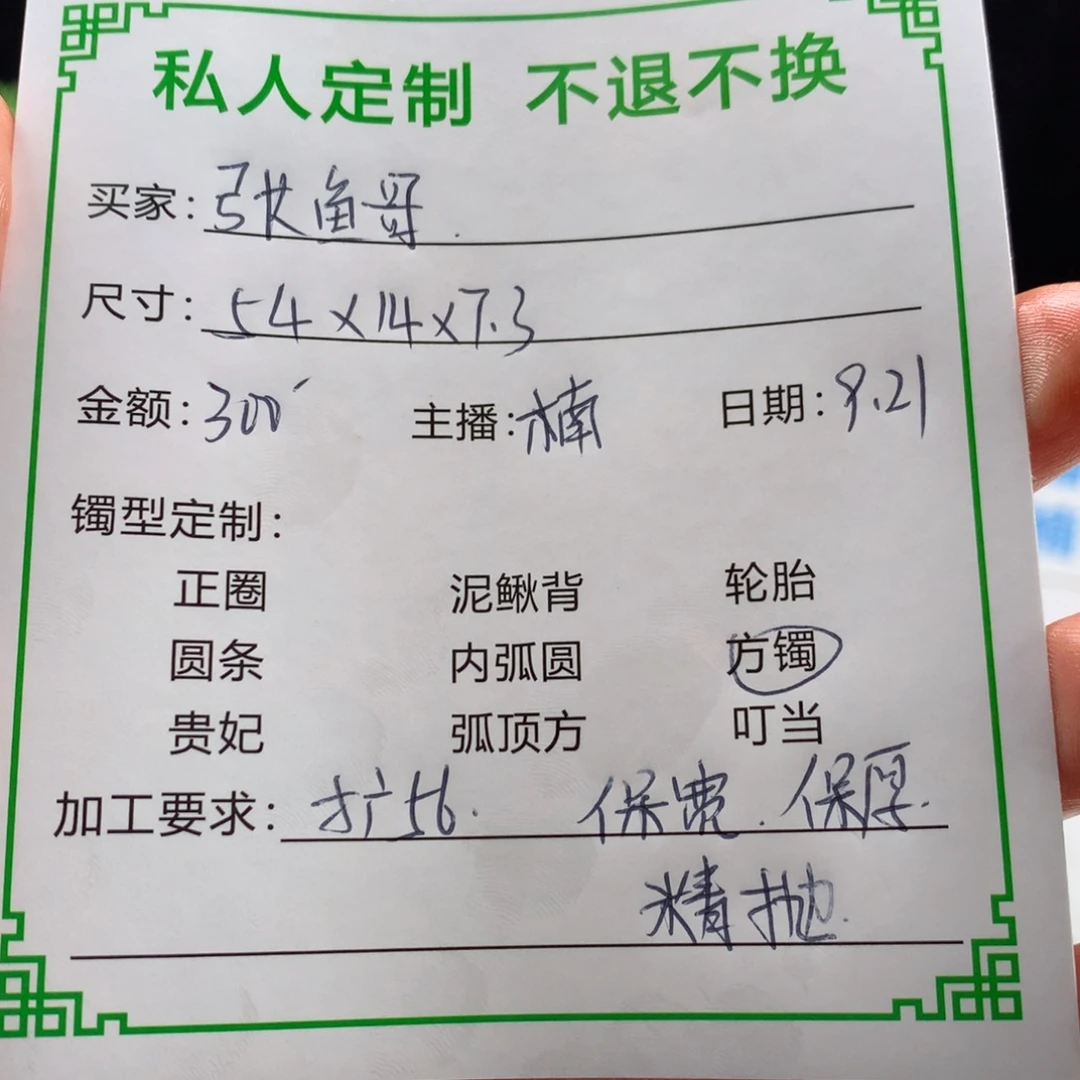 私人定制 不退不换
买家: 张鱼哥
尺寸: 54×14×7.3
金额: 300 主播: 楠 日期: 9.21
镯型定制:
正圈 泥鳅背 轮胎
圆条 内弧圆 方镯
贵妃 弧顶方 叮当
加工要求: 扩56. 保宽. 保厚.
精抛.